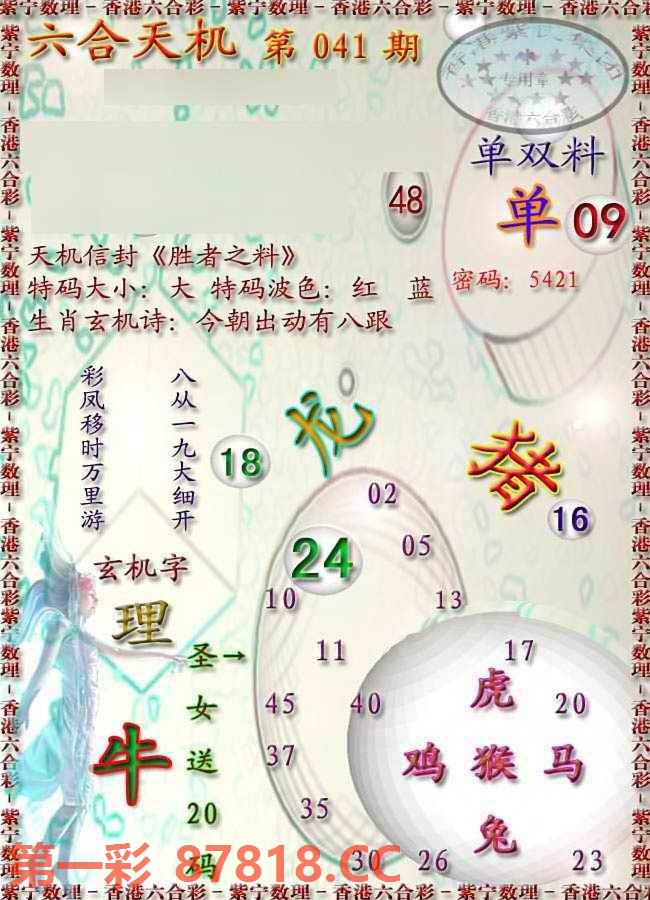 紫宁数理－香港六合彩－紫宁数理－香港六合彩－紫宁数理－香港六合彩
六合天机 第 041 期
专用章
香港六合彩
单双料
48
单 09
天机信封《胜者之料》
特码大小：大 特码波色：红 蓝
密码：5421
生肖玄机诗：今朝出动有八跟
八从一九大细开
彩凤移时万里游
龙
猪
18
16
02
24
05
玄机字
10
13
理
11
17
圣女送20码
虎
45
40
20
牛
37
鸡 猴 马
35
兔
30
26
23
第一彩 87818.CC
紫宁数理－香港六合彩－紫宁数理－香港六合彩－紫宁数理－香港六合彩